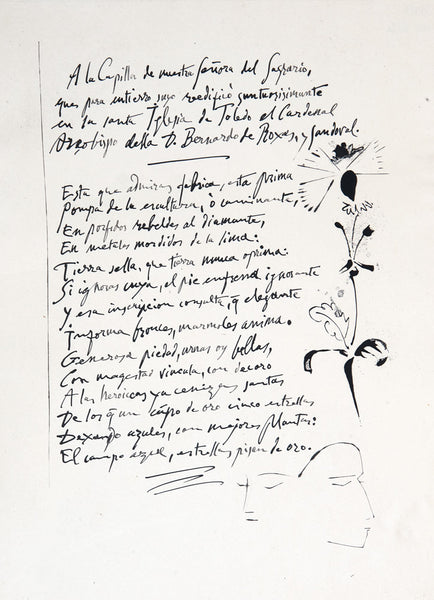 A la Capilla de nuestra Señora del Sagrario,
que para entierro suyo reedificò suntuosisimante
en su santa Iglesia de Toledo el Cardenal
Arzobispo della D. Bernardo de Roxas, y Sandoval.
Esta que admiras fabrica, esta prima
Pompa de la escultura, ò caminante,
En porfidos rebeldes al diamante,
En metales mordidos de la lima:
Tierra sella, que tierra nunca oprima:
Si ignoras cuya, el pie enfrena ignorante
Y esa inscripcion consulta, q̃ elegante
Informa bronces, marmoles anima.
Generosa piedad, urnas oy bellas,
Con magestad vincula, con decoro
A las heroicas ya cenizas santas
De los q̃ un cãpo de oro cinco estrellas
Dexando azules, con mejores plantas:
El campo azul, estrellas pisan de oro.